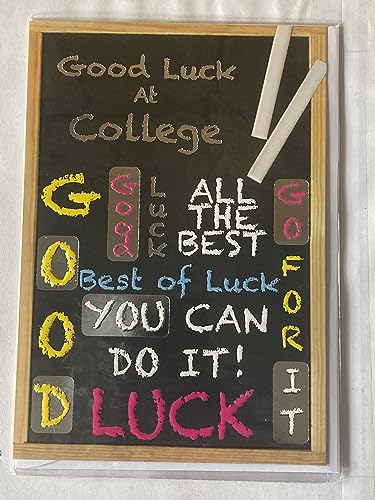 Good Luck
At
College
GOOD
Good
Luck
ALL
THE
BEST
GO
FOR
IT
Best of Luck
YOU CAN
DO IT!
LUCK